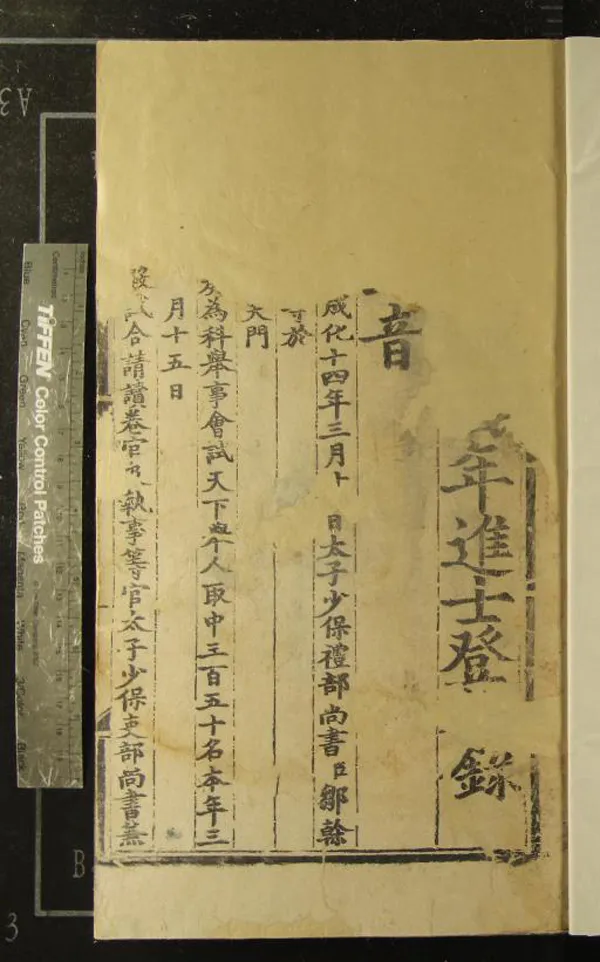 年進士登錄
音
成化十四年三月 日太子少保禮部尚書臣鄒榦
於
天門
為科舉事會試天下舉人取中三百五十名本年三
月十五日
殿試合請讀卷官及執事等官太子少保吏部尚書兼
TIFFEN Color Control Patches
Centimetres
Blue
Green
Yellow
White
3/Color
Black
A3
B
3